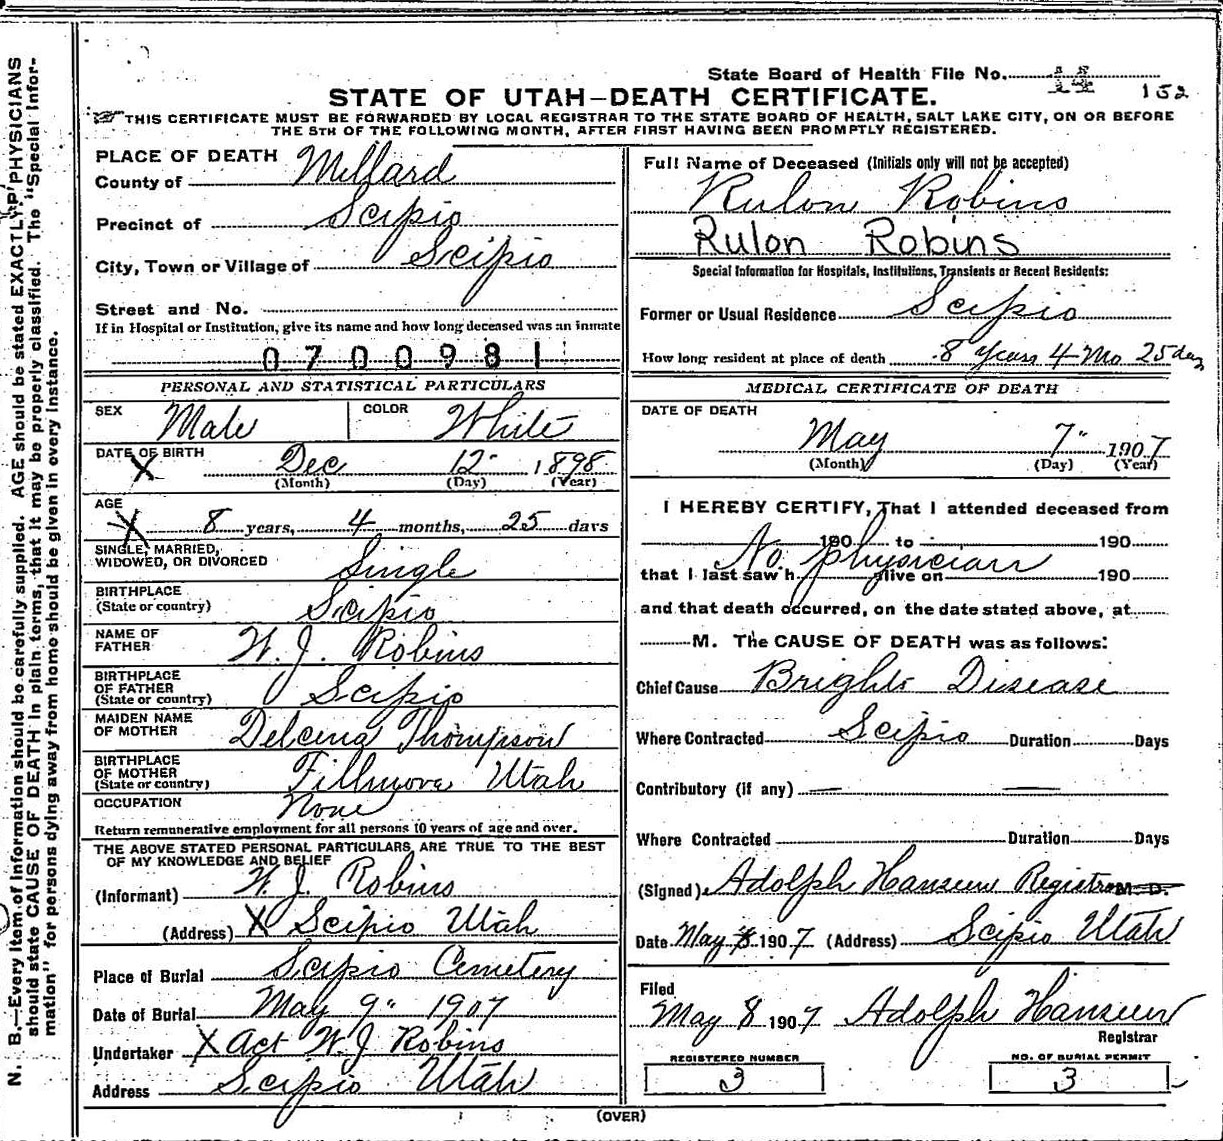 State Board of Health File No. 14 152
STATE OF UTAH—DEATH CERTIFICATE.
THIS CERTIFICATE MUST BE FORWARDED BY LOCAL REGISTRAR TO THE STATE BOARD OF HEALTH, SALT LAKE CITY, ON OR BEFORE
THE 5TH OF THE FOLLOWING MONTH, AFTER FIRST HAVING BEEN PROMPTLY REGISTERED.
PLACE OF DEATH
County of Millard
Precinct of Scipio
City, Town or Village of Scipio
Street and No.
If in Hospital or Institution, give its name and how long deceased was an inmate
0700981
PERSONAL AND STATISTICAL PARTICULARS
SEX Male COLOR White
DATE OF BIRTH X Dec 12" 1898
(Month) (Day) (Year)
AGE
X 8 years, 4 months, 25 days
SINGLE, MARRIED,
WIDOWED, OR DIVORCED Single
BIRTHPLACE
(State or country) Scipio
NAME OF
FATHER W. J. Robins
BIRTHPLACE
OF FATHER
(State or country) Scipio
MAIDEN NAME
OF MOTHER Delcena Thompson
BIRTHPLACE
OF MOTHER
(State or country) Fillmore Utah
OCCUPATION None
Return remunerative employment for all persons 10 years of age and over.
THE ABOVE STATED PERSONAL PARTICULARS ARE TRUE TO THE BEST
OF MY KNOWLEDGE AND BELIEF
(Informant) W. J. Robins
(Address) X Scipio Utah
Place of Burial Scipio Cemetery
Date of Burial May 9" 1907
Undertaker X Act W. J. Robins
Address Scipio Utah
Full Name of Deceased (Initials only will not be accepted)
Rulon Robins
Rulon Robins
Special Information for Hospitals, Institutions, Transients or Recent Residents:
Former or Usual Residence Scipio
How long resident at place of death 8 Years 4 Mo 25 day
MEDICAL CERTIFICATE OF DEATH
DATE OF DEATH
May 7" 1907
(Month) (Day) (Year)
I HEREBY CERTIFY, That I attended deceased from
190 to 190
No physician
that I last saw h alive on 190
and that death occurred, on the date stated above, at
M. The CAUSE OF DEATH was as follows:
Chief Cause Brights Disease
Where Contracted Scipio Duration Days
Contributory (if any) — —
Where Contracted Duration Days
(Signed) Adolph Hansen Registrar M. D.
Date May 8 1907 (Address) Scipio Utah
Filed
May 8 1907 Adolph Hansen
Registrar
REGISTERED NUMBER
3
NO. OF BURIAL PERMIT
3
(OVER)
N. B.—Every item of information should be carefully supplied. AGE should be stated EXACTLY. PHYSICIANS
should state CAUSE OF DEATH in plain terms, that it may be properly classified. The "Special Infor-
mation" for persons dying away from home should be given in every instance.